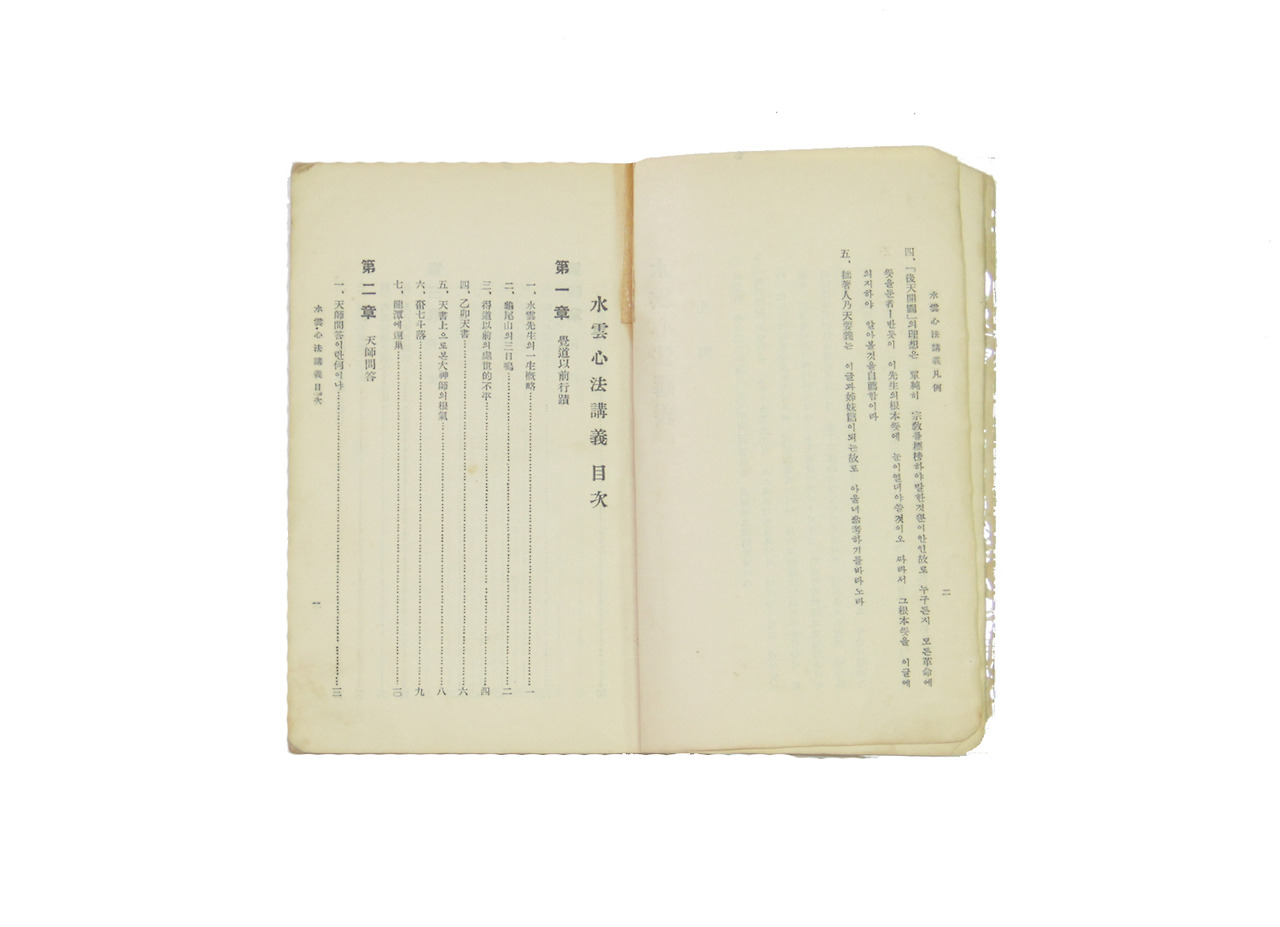 水雲心法講義凡例
二
四、『後天開闢』의理想은 單純히 宗敎를標榜하야말한것뿐이안인故로 누구든지 모든革命에
뜻을둔者ㅣ반듯이 이先生의根本뜻에 눈이열녀야쓸것이오 따라서 그根本뜻을 이글에
의지하야 알아볼것을自薦함이라
五、拙著人乃天要義는 이글과姉妹篇이되는故로 아울너參考하기를바라노라
水雲心法講義 目次
第一章 覺道以前行蹟
一、水雲先生의一生槪略……一
二、龜尾山의三日鳴……二
三、得道以前의處世的不平……四
四、乙卯天書……六
五、天書上으로본大神師의根氣……八
六、畓七斗落……九
七、龍潭에還巢……一〇
第二章 天師問答
一、天師問答이란何이냐……三
水雲心法講義目次
一